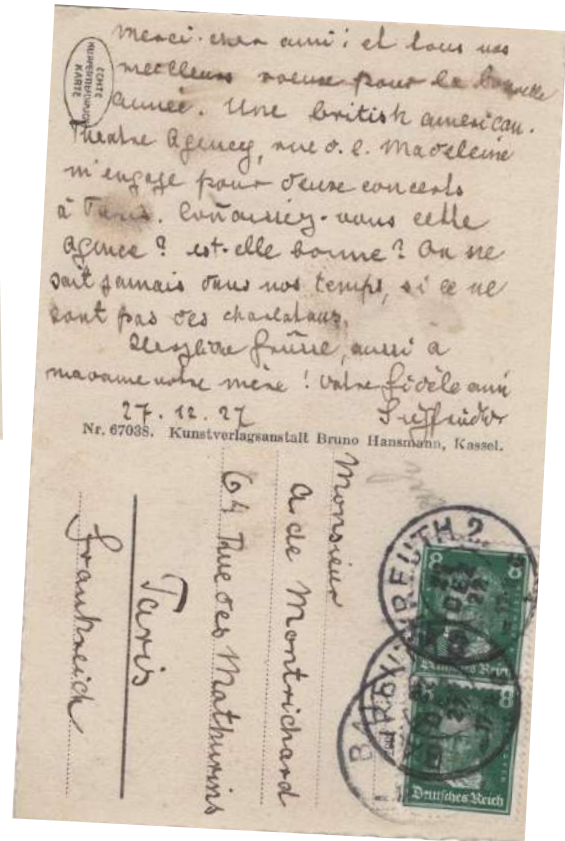 merci cher ami! et tous nos
meilleurs voeux pour la nouvelle
année. Une british american.
Theatre Agency, rue d. l. Madeleine
m'engage pour deux concerts
à Paris. Connaissez-vous cette
agence? est-elle bonne? On ne
sait jamais dans nos temps, si ce ne
sont pas des charlatans.
Herzliche Grüsse, aussi a
madame votre mère! votre fidèle ami
27.12.27
Nr. 67038. Kunstverlagsanstalt Bruno Hansmann, Kassel.
ECHTE
KUPFERTIEFDRUCK
KARTE
Monsieur
A de Montrichard
64 Rue des Mathurins
Paris
Frankreich
BAYREUTH 2
DEZ
27
8 8
Deutsches Reich
8
Deutsches Reich